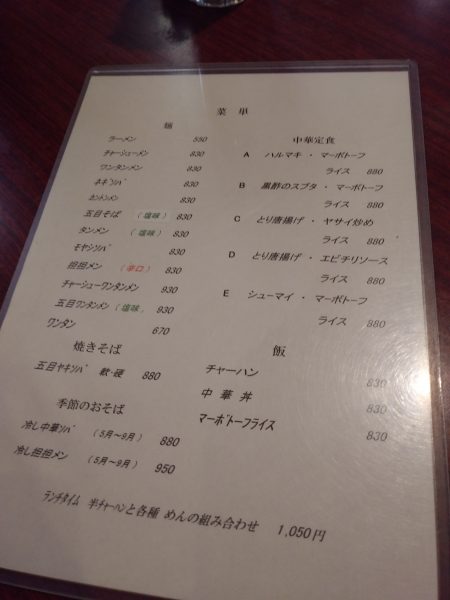 菜単
麺
ラーメン 550
チャーシューメン 830
ワンタンメン 830
ネギソバ 830
カントンメン 830
五目そば （塩味） 830
タンメン （塩味） 830
モヤシソバ 830
担担メン （辛口） 830
チャーシューワンタンメン 930
五目ワンタンメン （塩味） 930
ワンタン 670
焼きそば
五目ヤキソバ 軟・硬 880
季節のおそば
冷し中華ソバ （5月～9月） 880
冷し担担メン （5月～9月） 950
中華定食
A ハルマキ ・ マーボトーフ
ライス 880
B 黒酢のスブタ ・ マーボトーフ
ライス 880
C とり唐揚げ ・ ヤサイ炒め
ライス 880
D とり唐揚げ ・ エビチリソース
ライス 880
E シューマイ ・ マーボトーフ
ライス 880
飯
チャーハン 830
中華丼 830
マーボトーフライス 830
ランチタイム 半チャーハンと各種 めんの組み合わせ 1,050円